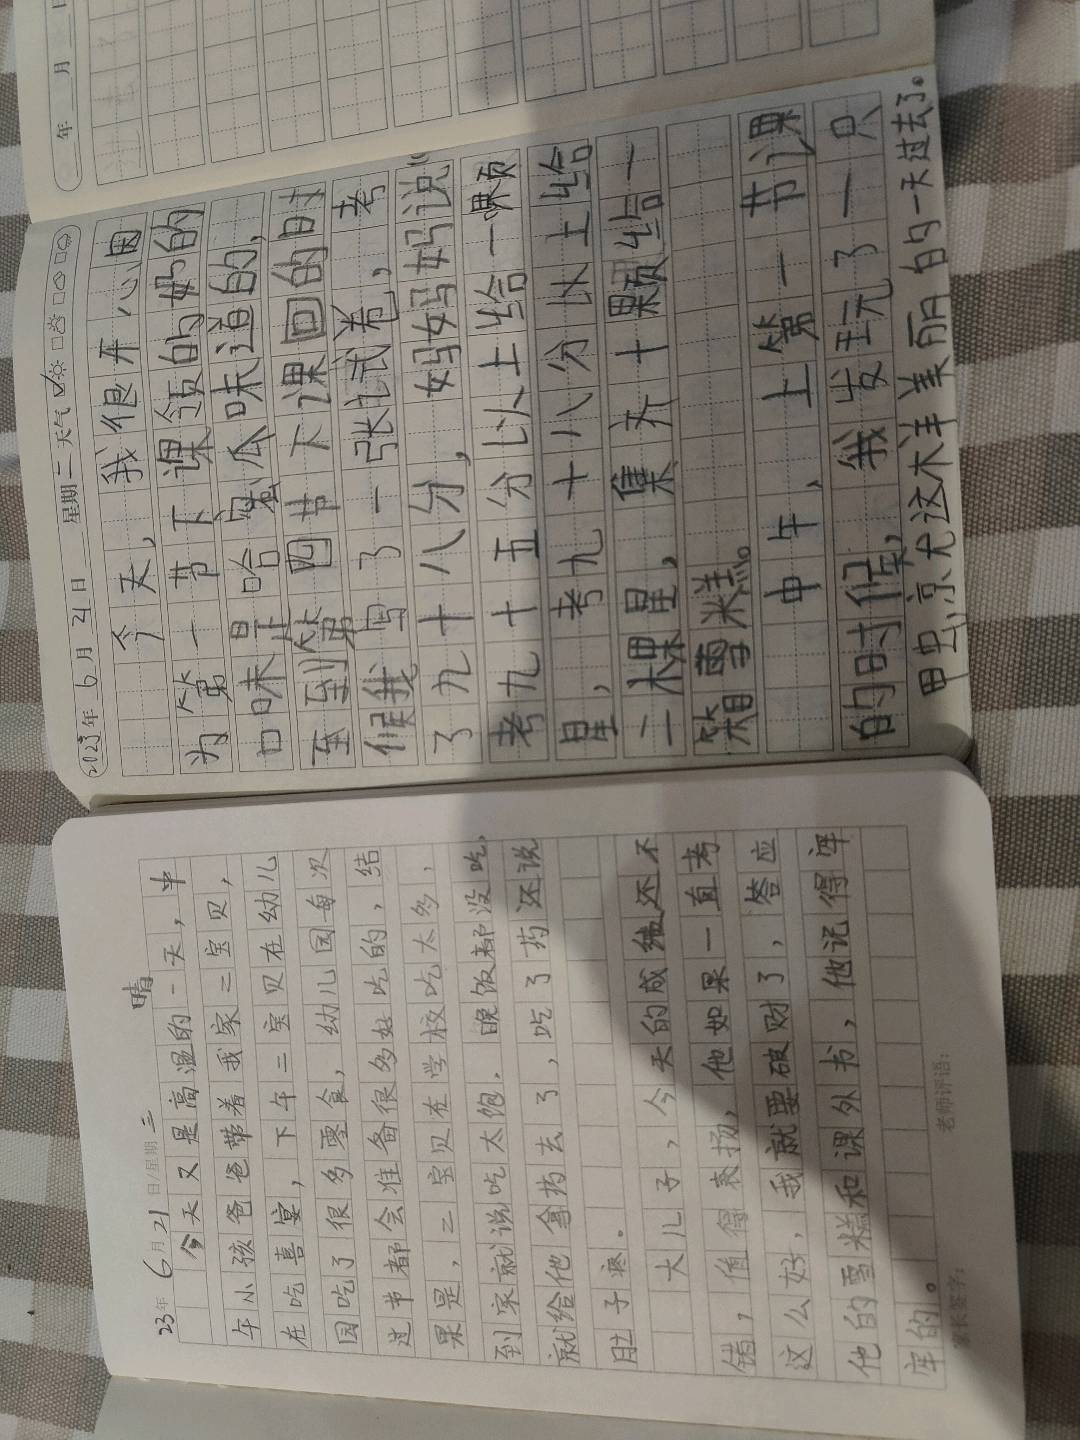 年 月 日
2023年 6月 21日 星期二 天气
今天，我很开心因
为第一节下课领的奶的
口味是哈蜜瓜味道的，
至到第四节下课回的时
了一张试卷，考
了九十八分，妈妈妈妈说"
考九十五分以上给一颗
星，考九十八分以上给
二棵星，集齐十颗 给一
箱雪糕。
中午，上第一节课
的时候，我发玩了一只
甲虫，京尤这木羊美丽的一天过去了。
23年 6月21日/星期三 晴
今天又是高温的一天，中
午小孩爸爸带着我家二宝贝，
在吃喜宴，下午二宝贝在幼儿
园吃了很多零食，幼儿园每次
过节都会准备很多好吃的，结
果是，二宝贝在学校吃太多，
到家就说吃太饱，晚饭都没吃，
就给他拿药去了，吃了药还说
肚子疼。
大儿子，今天的成绩还不
错，值得表扬，他如果一直考
这么好，我就要破财了，答应
他的雪糕和课外书，他记得牢
牢的。
家长签字： 老师评语：